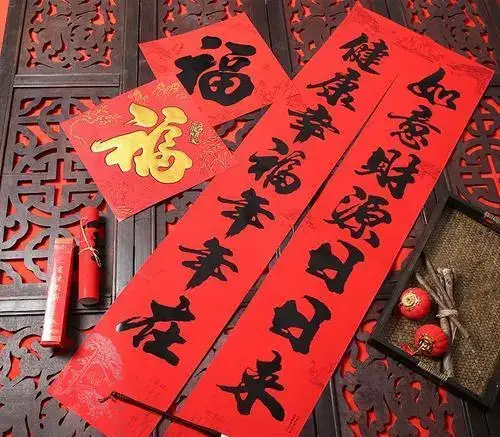 福
福
健康幸福年年在
如意財源日日来